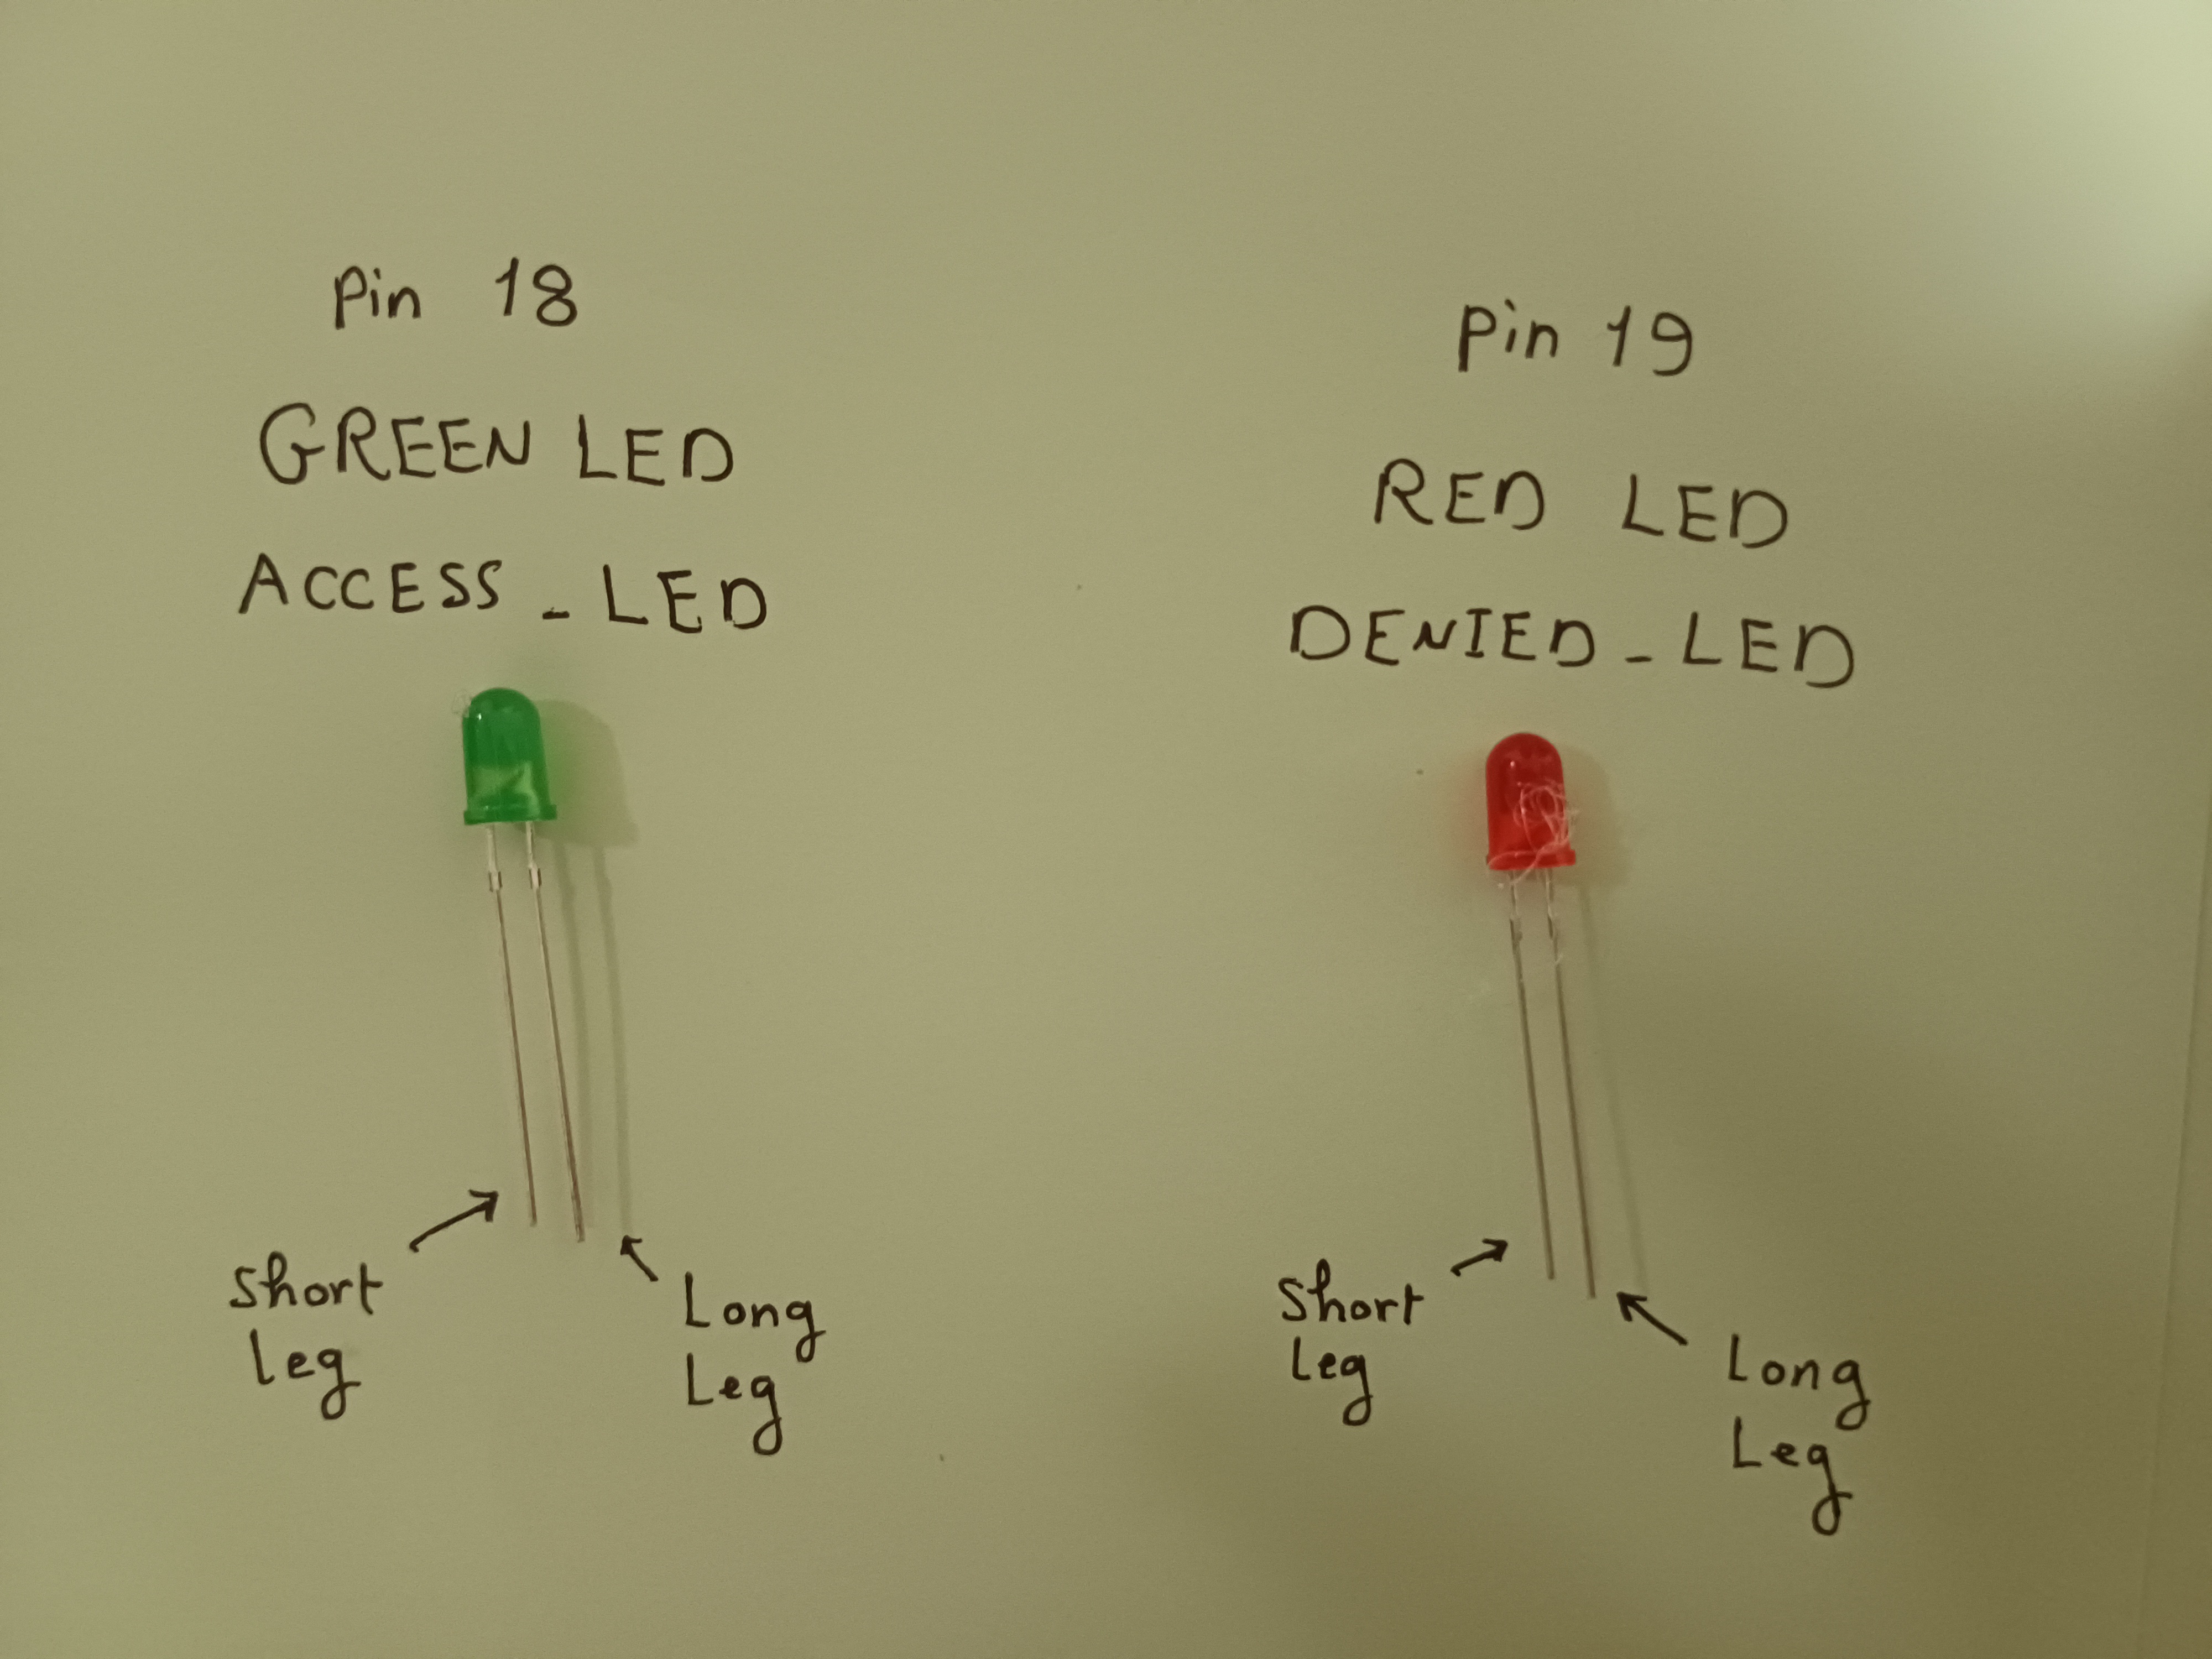 Pin 18
GREEN LED
ACCESS_LED
Short
Leg
Long
Leg
Pin 19
RED LED
DENIED_LED
Short
Leg
Long
Leg